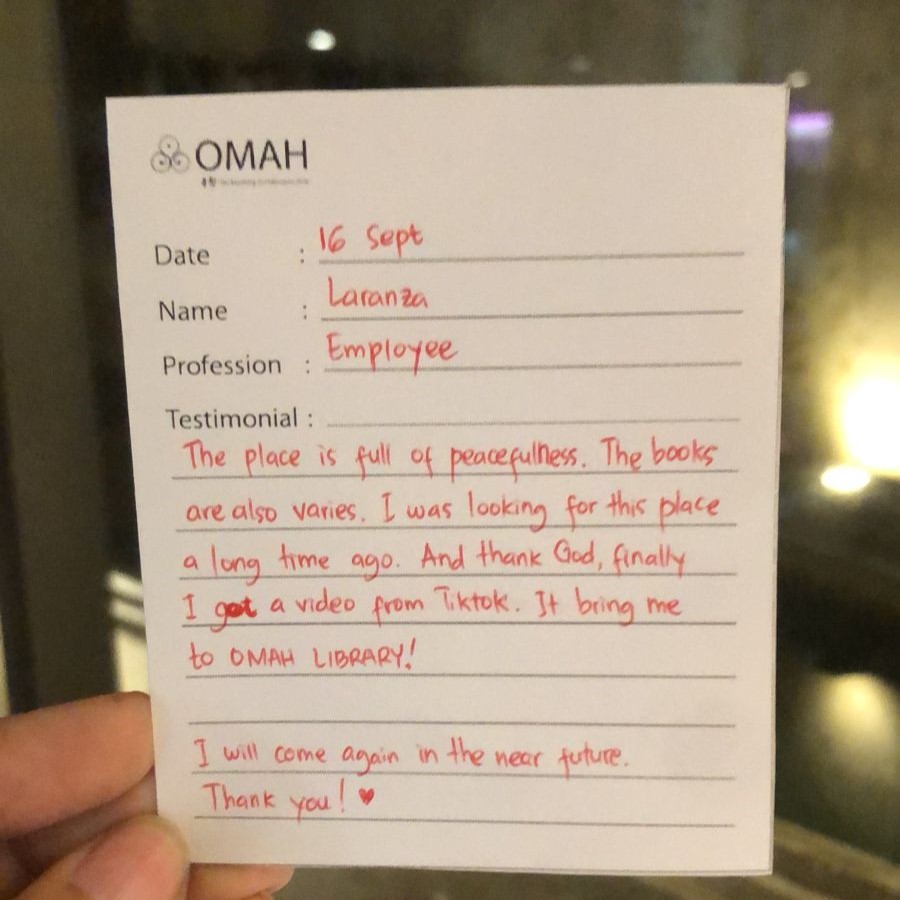 OMAH
Date : 16 Sept
Name : Laranza
Profession : Employee
Testimonial :
The place is full of peacefulness. The books
are also varies. I was looking for this place
a long time ago. And thank God, finally
I got a video from Tiktok. It bring me
to OMAH LIBRARY!
I will come again in the near future.
Thank you! ♥